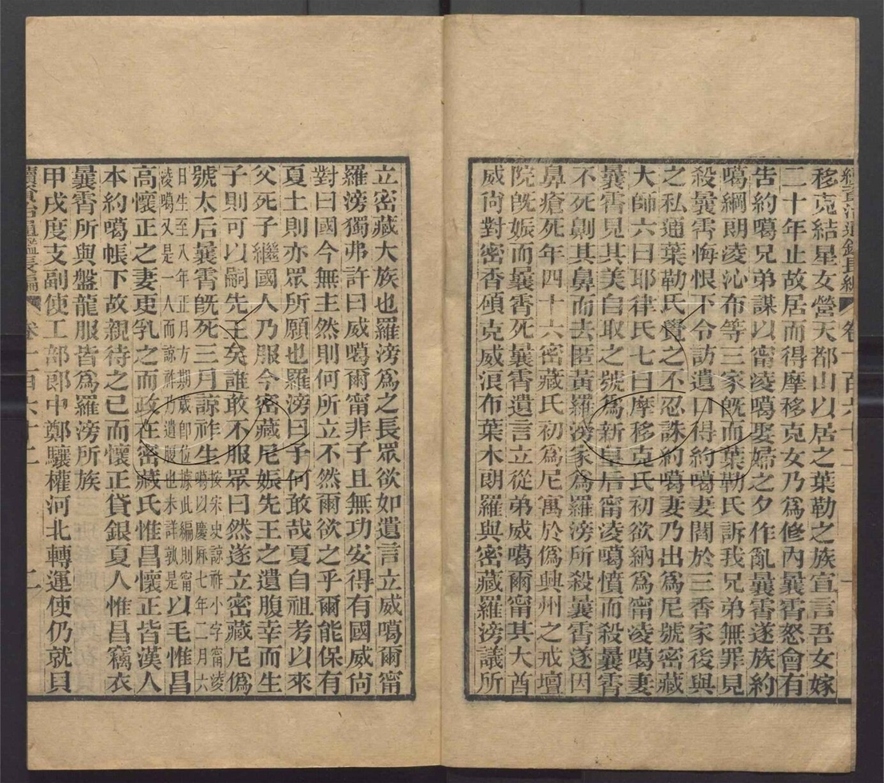 續資治通鑑長編 卷一百六十二
移克結星女營天都山以居之葉勒之族宣言吾女嫁
二十年止故居而得摩移克女乃爲修內曩霄怒會有
告約噶兄弟謀以甯淩噶娶婦之夕作亂曩霄遂族約
噶綱朗淩沁布等三家旣而葉勒氏訴我兄弟無罪見
殺曩霄悔恨下令訪遺口得約噶妻闊於三香家後與
之私通葉勒氏覺之不忍誅約噶妻乃出爲尼號密藏
大師六曰耶律氏七曰摩移克氏初欲納爲甯淩噶妻
曩霄見其美自取之號爲新皇后甯淩噶憤而殺曩霄
不死劓其鼻而去匿黃羅滂家爲羅滂所殺曩霄遂因
鼻瘡死年四十六密藏氏初爲尼寓於僞興州之戒壇
院旣娠而曩霄死曩霄遺言立從弟威噶爾甯其大酋
威尙對密香碩克威浪布葉木朗羅與密藏羅滂議所
立密藏大族也羅滂爲之長眾欲如遺言立威噶爾甯
羅滂獨弗許曰威噶爾甯非子且無功安得有國威尙
對曰國今無主然則何所立不然爾欲之乎爾能保有
夏土則亦眾所願也羅滂曰子何敢哉夏自祖考以來
父死子繼國人乃服今密藏尼娠先王之遺腹幸而生
子則可以嗣先王矣誰敢不服眾曰然遂立密藏尼僞
號太后曩霄旣死三月諒祚生按宋史諒祚小字甯淩噶以慶厯七年二月六
日生至八年正月方期歲卽位據此編則甯淩噶又是一人而諒祚乃遺腹也未詳孰是以毛惟昌
高懷正之妻更乳之而政在密藏氏惟昌懷正皆漢人
本約噶帳下故親待之已而懷正貸銀夏人惟昌竊衣
曩霄所與盤龍服皆爲羅滂所族
甲戌度支副使工部郎中鄭驤權河北轉運使仍就貝
續資治通鑑長編 卷一百六十二 二